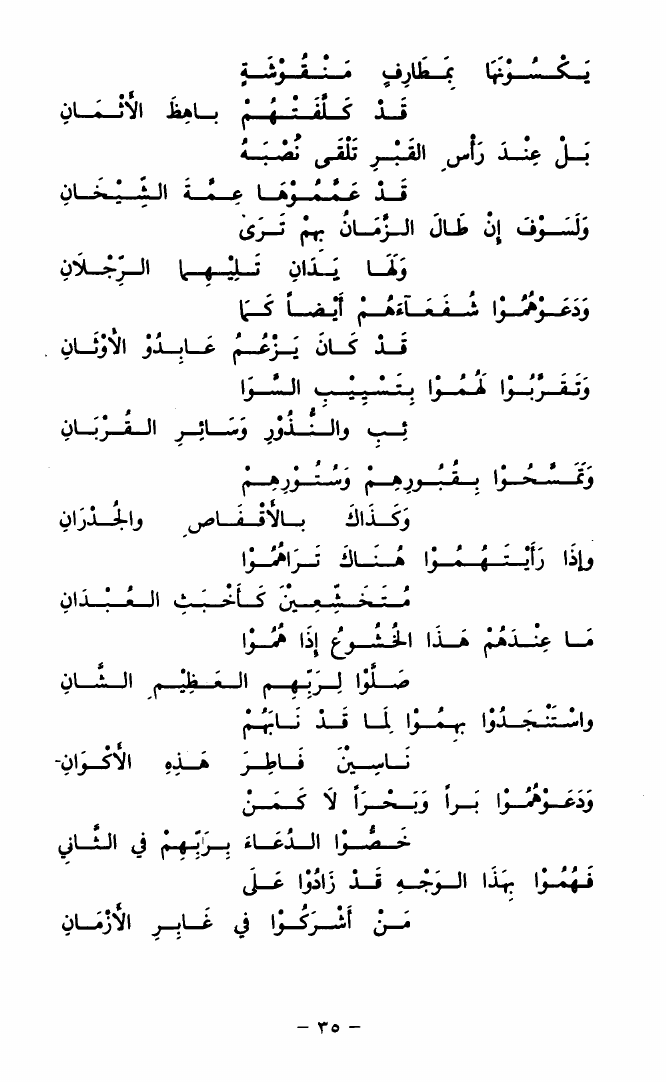 يَكْسُونَهَا بِمَطَارِفٍ مَنْقُوشَةٍ
قَدْ كَلَّفَتْهُمْ بَاهِظَ الأَثْمَانِ
بَلْ عِنْدَ رَأْسِ القَبْرِ تَلْقَى نُصْبَهُ
قَدْ عَمَّمُوْهَا عِمَّةَ الشِّيْخَانِ
وَلَسَوْفَ إِنْ طَالَ الزَّمَانُ بِهِمْ تَرَىْ
وَلَهَا يَدَانِ تَلِيْهِمَا الرِّجْلَانِ
وَدَعَوْهُمُوْا شُفَعَآءَهُمْ أَيْضاً كَمَا
قَدْ كَانَ يَزْعُمُ عَابِدُوْ الأَوْثَانِ
وَتَقَرَّبُوْا لَهُمُوْا بِتَسْيِيْبِ السَّوَا
ئِبِ والنُّذُوْرِ وَسَائِرِ القُرْبَانِ
وَتَمَسَّحُوْا بِقُبُورِهِمْ وَسُتُوْرِهِمْ
وَكَذَاكَ بِالأَقْفَاصِ والجُدْرَانِ
وإِذَا رَأَيْتَهُمُوْا هُنَاكَ تَرَاهُمُوْا
مُتَخَشِّعِيْنَ كَأَخْبَثِ العُبْدَانِ
مَا عِنْدَهُمْ هَذَا الخُشُوعُ إِذَا هُمُوْا
صَلَّوْا لِرَبِّهِمِ العَظِيْمِ الشَّانِ
واسْتَنْجَدُوْا بِهِمُوْا لِمَا قَدْ نَابَهُمْ
نَاسِيْنَ فَاطِرَ هَذِهِ الأَكْوَانِ-
وَدَعَوْهُمُوْا بَراً وَبَحْرَاً لَا كَمَنْ
خَصُّوْا الدُعَاءَ بِرَبِّهِمْ فِي الثَّانِي
فَهُمُوْا بِهَذَا الوَجْهِ قَدْ زَادُوْا عَلَى
مَنْ أَشْرَكُوْا فِي غَابِرِ الأَزْمَانِ
– ٣٥ –